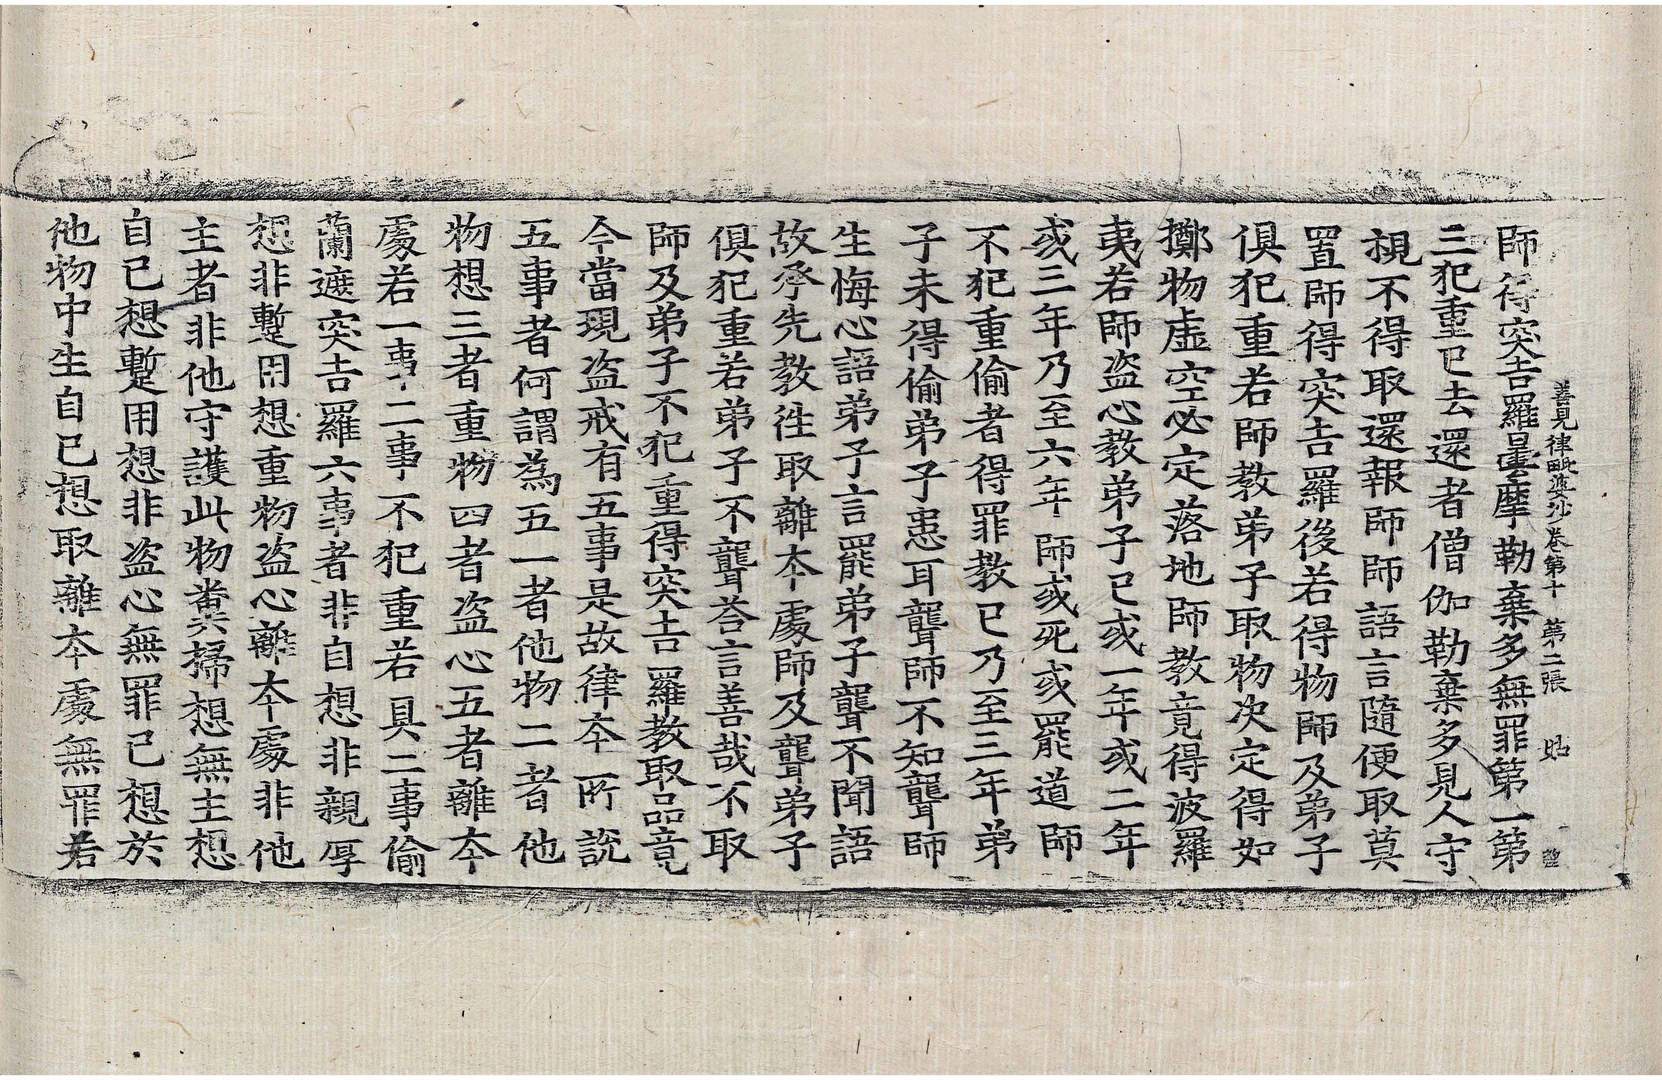 善見律毗婆沙卷第十 第二張 姑
師得突吉羅曇摩勒棄多無罪第一第
三犯重已去還者僧伽勒棄多見人守
視不得取還報師師語言隨便取莫
置師得突吉羅後若得物師及弟子
俱犯重若師教弟子取物決定得如
擲物虛空必定落地師教竟得波羅
夷若師盜心教弟子已或一年或二年
或三年乃至六年師或死或罷道師
不犯重偷者得罪教已乃至三年弟
子未得偷弟子患耳聾師不知聾師
生悔心語弟子言罷弟子聾不聞語
故承先教往取離本處師及聾弟子
俱犯重若弟子不聾荅言善哉不取
師及弟子不犯重得突吉羅教取品竟
今當現盜戒有五事是故律本所說
五事者何謂為五一者他物二者他
物想三者重物四者盜心五者離本
處若一事二事不犯重若具三事偷
蘭遮突吉羅六事者非自想非親厚
想非蹔用想重物盜心離本處非他
主者非他守護此物糞掃想無主想
自己想蹔用想非盜心無罪已想於
他物中生自己想取離本處無罪若